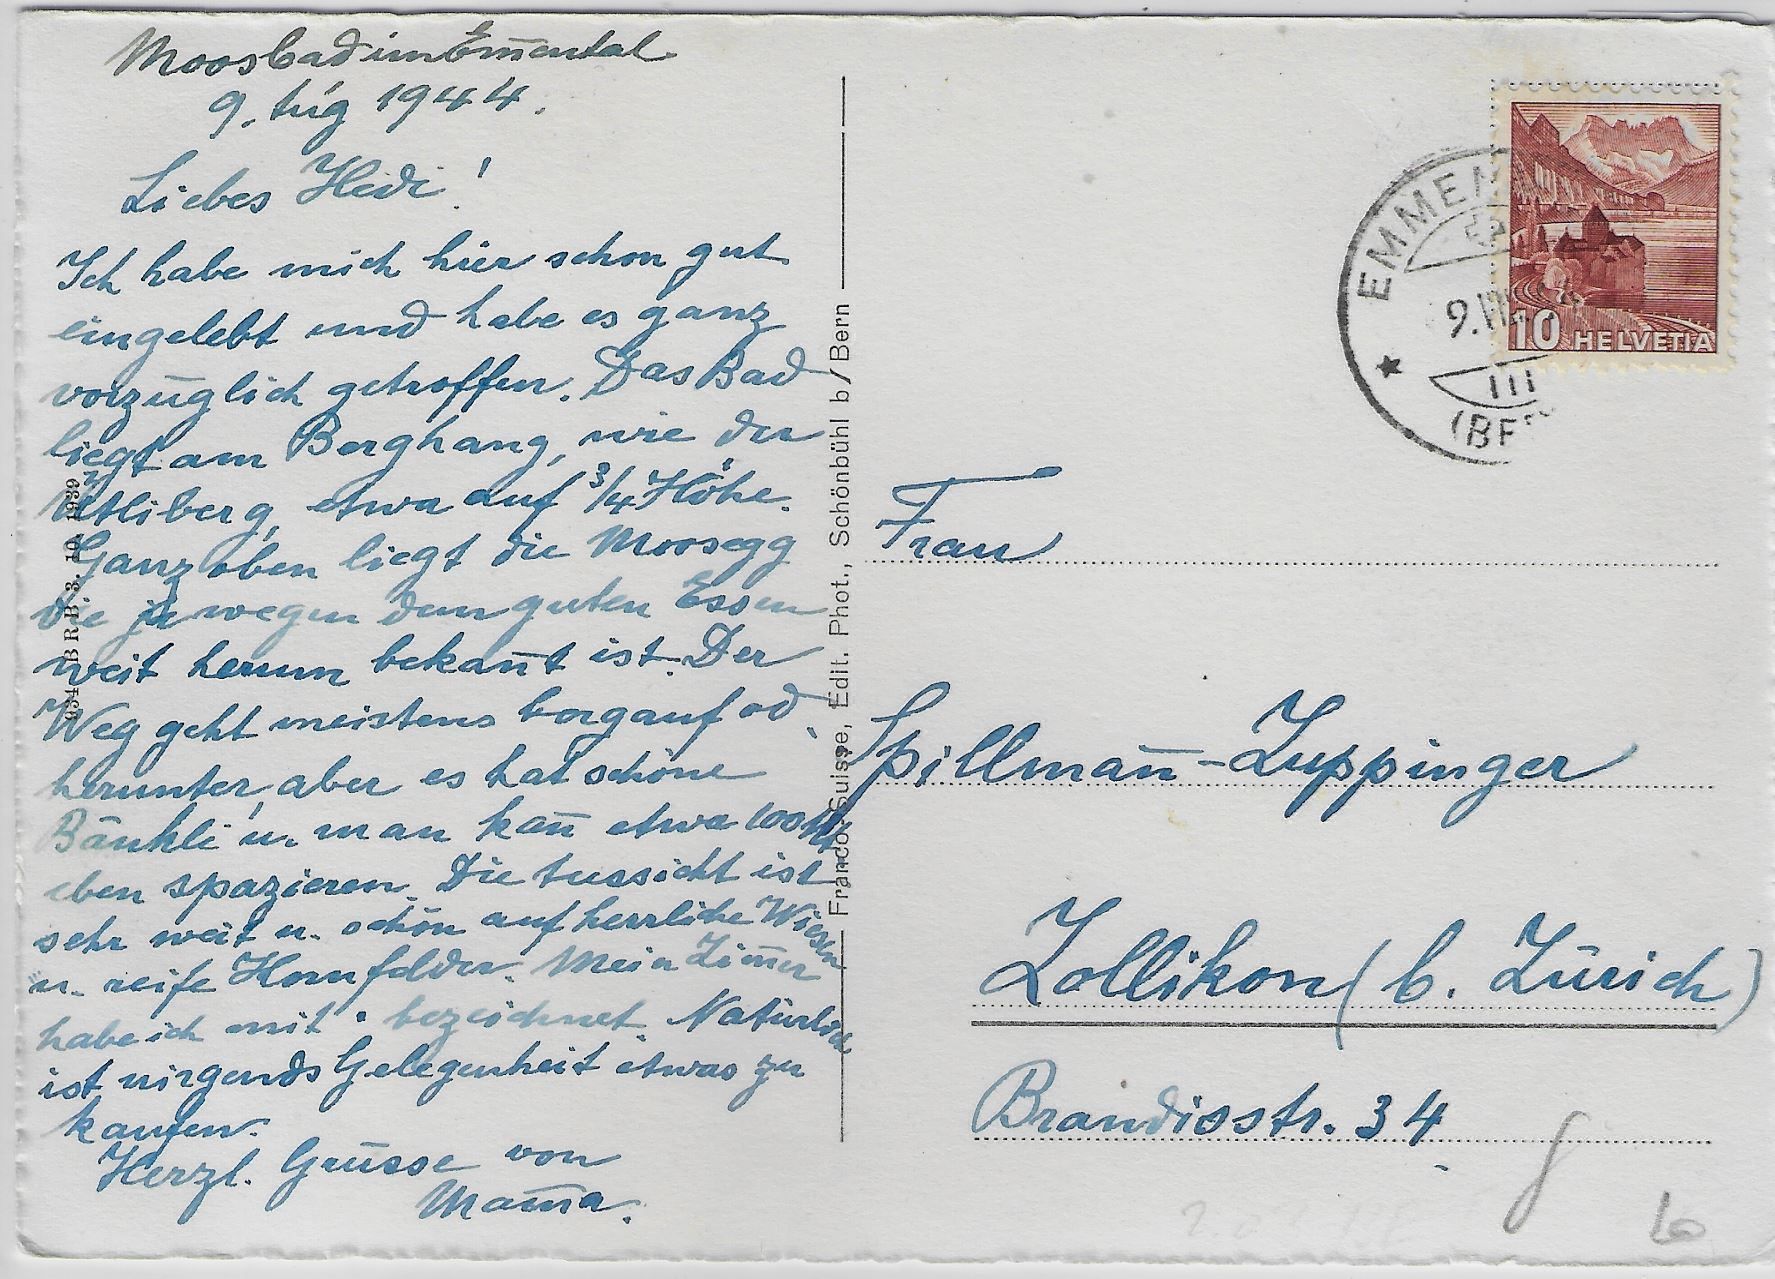 Moosbad im Em̄ental
9. Aug 1944.
Liebes Hedi!
Ich habe mich hier schon gut
eingelebt und habe es ganz
vorzüglich getroffen. Das Bad
liegt am Berghang, wie der
Ütliberg, etwa auf 3/4 Höhe.
Ganz oben liegt die Moosegg
die ja wegen dem guten Essen
weit herum bekan̄t ist. Der
Weg geht meistens bergauf od.
herunter, aber es hat schöne
Bänkli u. man kan̄ etwa 100 M
eben spazieren. Die Aussicht ist
sehr weit u. schön auf herrliche Wiesen
u. reife Kornfelder. Mein Zim̄er
habe ich mit • bezeichnet. Natürlich
ist nirgends Gelegenheit etwas zu
kaufen.
Herzl. Grüsse von
Mam̄a.
934 BRB. 3. 10. 1939
Franco-Suisse, Edit. Phot., Schönbühl b/Bern
EMMEN
9.VIII
III
(BE
10 HELVETIA
Frau
Spillman̄-Zuppinger
Zollikon (b. Zürich)
Brandisstr. 34